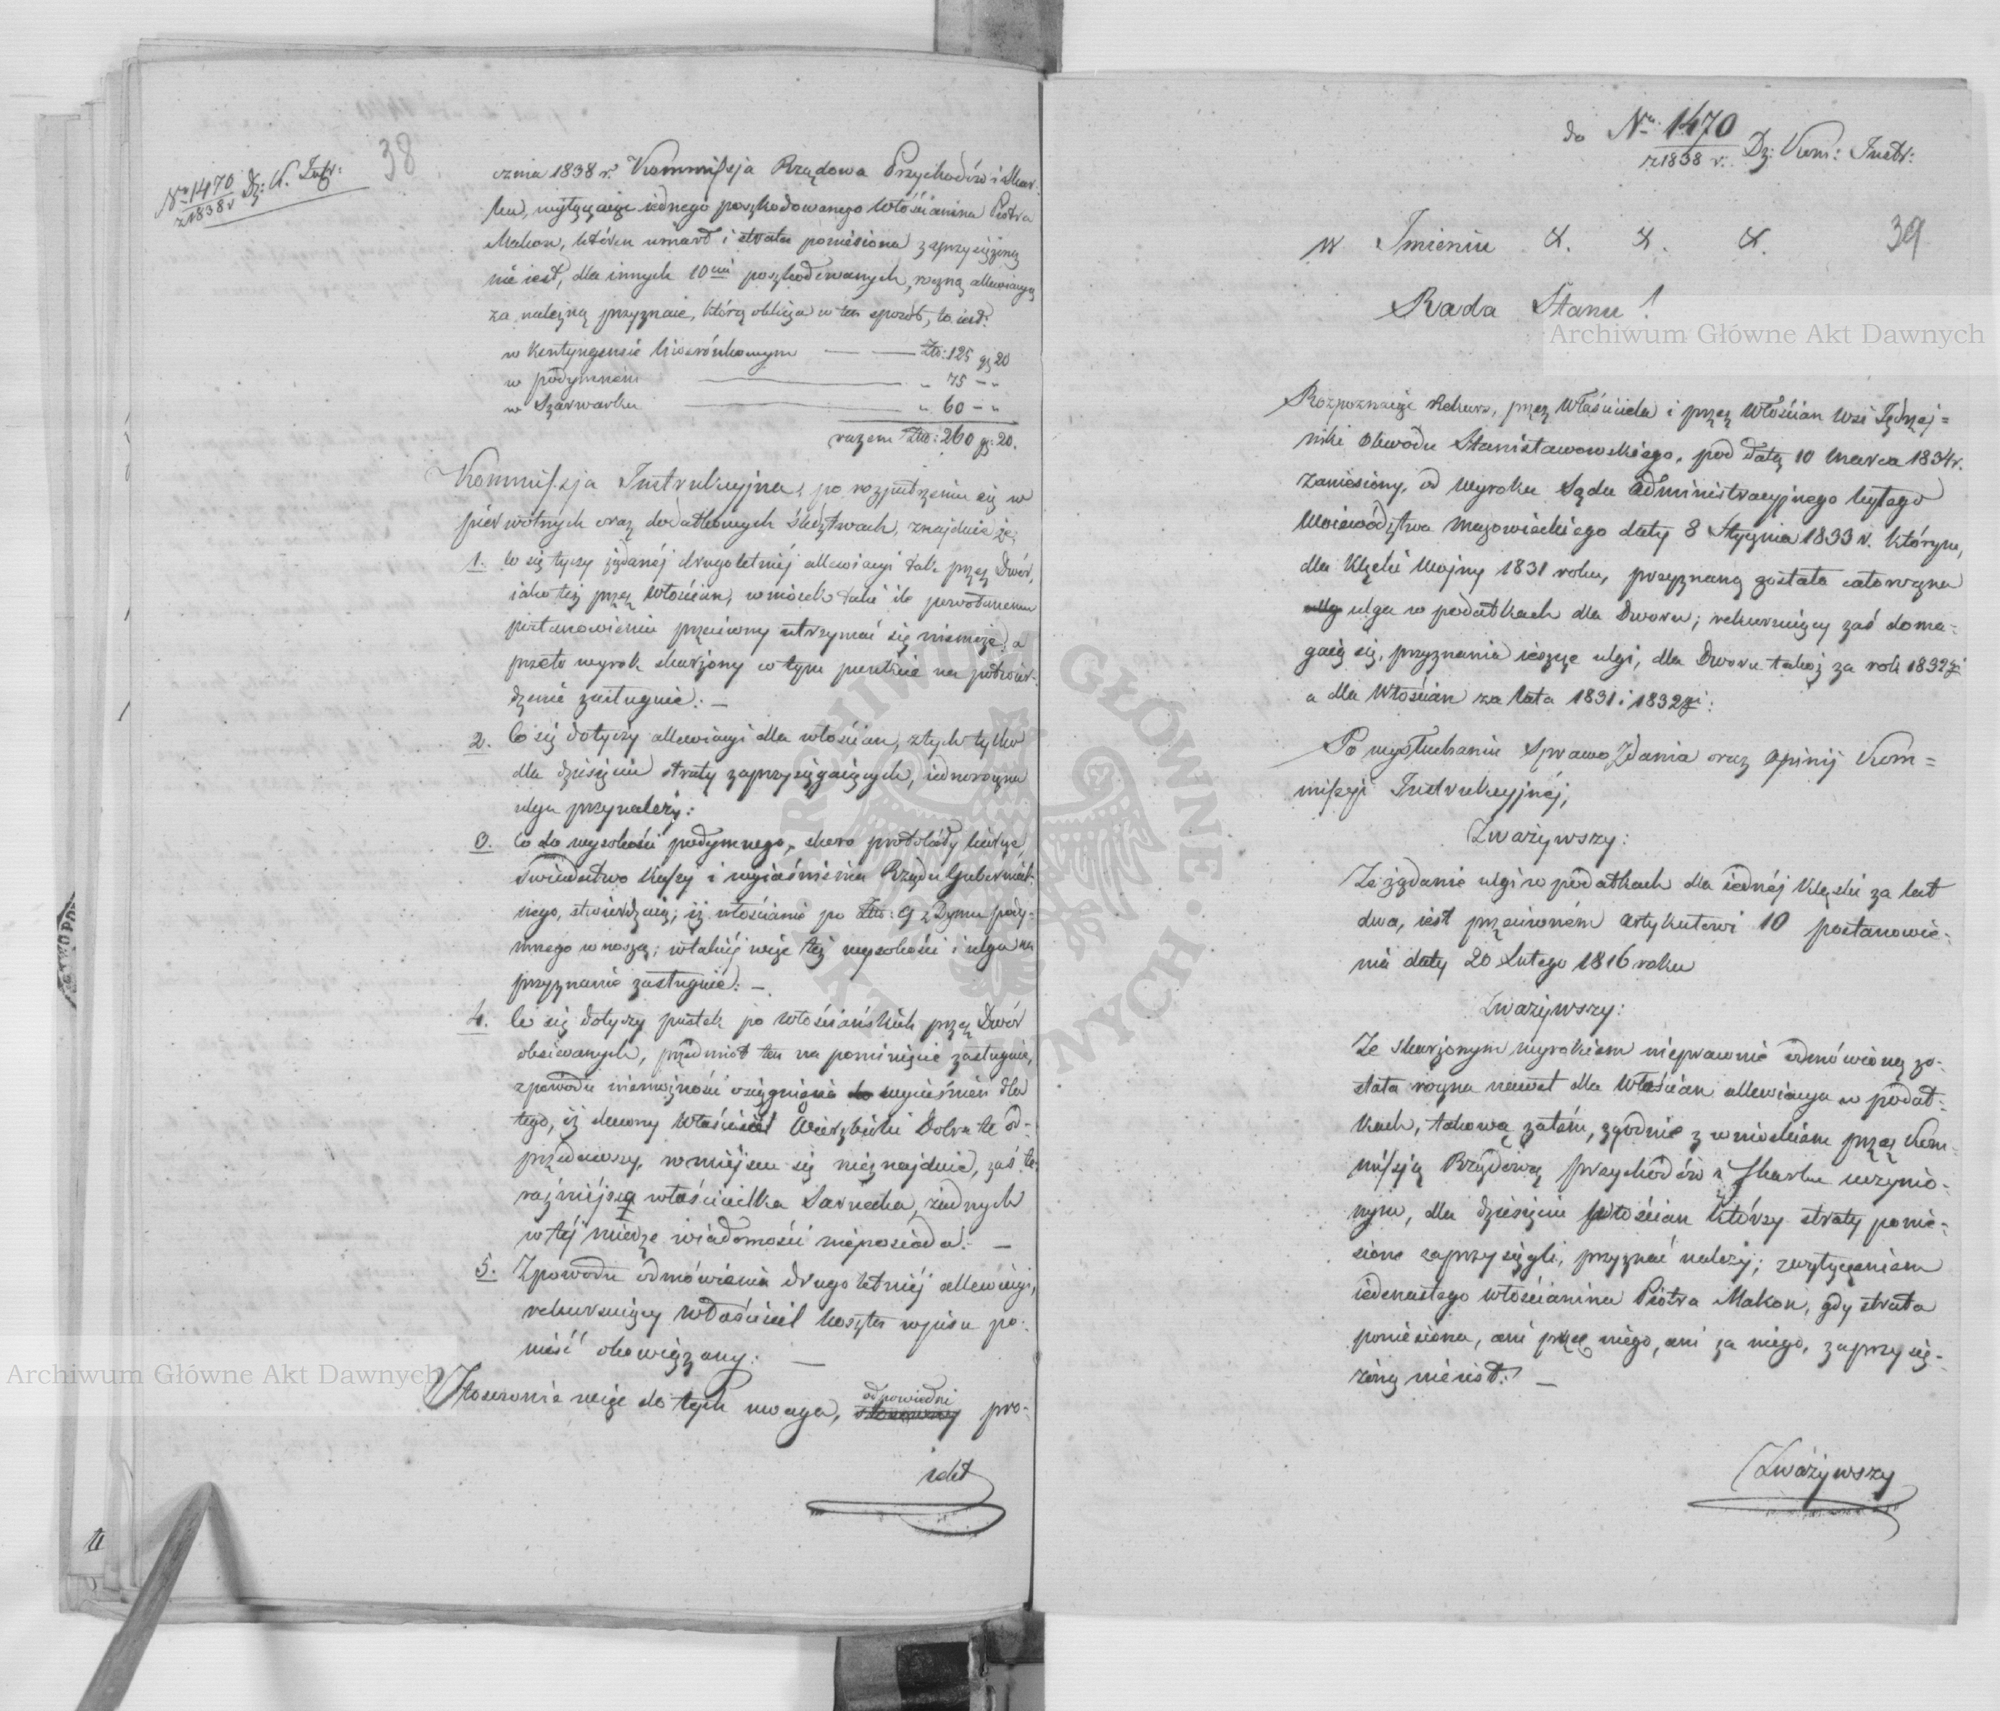 38
No 1470 Dz: K. Instr:
z 1838 r
cznia 1838 r. Kommissja Rządowa Przychodów i Skar-
bu, wyłączaiąc iednego poszkodowanego Włościanina Piotra
Makon, który umarł i strata poniesiona zaprzysiężoną
nie iest, dla innych 10ciu poszkodowanych, roczną allewiacyą
za należną przyznaie, którą oblicza w ten sposób, to iest:
w Kontyngensie liwerunkowym — — Złp: 125 gr 20
w podymnem — „ 75 – „
w Szarwarku — „ 60 – „
razem Złp: 260 gr: 20.
Kommissja Instrukcyjna, po rozpatrzeniu się w
pierwotnych oraz dodatkowych śledztwach, znajduie że;
1. Co się tyczy żądanéj drugoletniéj allewiacyi tak przez Dwór,
iako też przez Włościan, wniosek taki iako powołanemu
postanowieniu przeciwny utrzymać się niemoże, a
przeto wyrok skarżony w tym punkcie na potwier-
dzenie zasługuie: —
2. Co się dotyczy allewiacyi dla włościan, z tych tylko
dla dziesięciu straty zaprzysięgaiących, iednoroczna
ulga przynależy:
3. Co do wysokości podymnego, skoro protokóły
świadectwo Kassy i wyiaśnienia Rządu Gubernial-
nego, stwierdzaią, iż włościanie po Złp: 9 z Dymu pody-
mnego wnoszą; w takiéj więc téj wysokości i ulga na
przyznanie zasługuie: —
4. Co się dotyczy pustek po Włościańskich przez Dwór
obsiewanych, przedmiot ten na pominięcie zasługuie,
z powodu niemożności osiągnienia do wyiaśnień dla
tego, iż dawny Właściciel Wierzbicki Dobra te od-
przedawszy, w miejscu się nieznajduie, zaś te-
raźniejsza właścicielka Sarnecka, żadnych
w téj mierze wiadomości nieposiada: —
5. Z powodu odmówienia drugoletniéj allewiacyi,
rekursuiący Właściciel koszta wpisu po-
nieść obowiązany: —
Stosownie więc do tych uwag, odpowiedni pro-
iekt
do No 1470 Dz: Kom: Instr:
z 1838 r.
39
w Imieniu &. &. &.
Rada Stanu!
Rozpoznaiąc Rekurs, przez Właściciela i przez Włościan Wsi Jędrzej=
niki Obwodu Stanisławowskiego, pod datą 10 Marca 1834 r.
zaniesiony, od Wyroku Sądu Administracyjnego byłego
Woiewództwa Mazowieckiego daty 8 Stycznia 1833 r. którym,
dla Klęski Wojny 1831 roku, przyznaną została całoroczna
ulga w podatkach dla Dworu; rekursuiący zaś doma-
gaią się, przyznania ieszcze ulgi, dla Dworu także za rok 1832gi
a dla Włościan za lata 1831 i 1832gi:
Po wysłuchaniu Sprawozdania oraz Opinij Kom=
missyi Instrukcyjnéj,
Zważywszy:
Że żądanie ulgi w podatkach dla iednéj klęski za lat
dwa, iest przeciwném artykułowi 10 postanowie-
nia daty 20 Lutego 1816 roku
Zważywszy:
Że skarżonym wyrokiem nieprawnie odmówioną zo-
stała roczna nawet dla Włościan allewiacya w podat-
kach, takową zatém, zgodnie z wnioskiem przez Kom-
missją Rządową Przychodów i Skarbu uczynio-
nym, dla dziesięciu Włościan którzy straty ponie-
sione zaprzysięgli, przyznać należy; z wyłączeniem
iedenastego włościanina Piotra Makon, gdy strata
poniesiona, ani przez niego, ani za niego, zaprzysię-
żoną nie iest: —
Zważywszy
Archiwum Główne Akt Dawnych
Archiwum Główne Akt Dawnych
ARCHIWUM GŁÓWNE AKT DAWNYCH